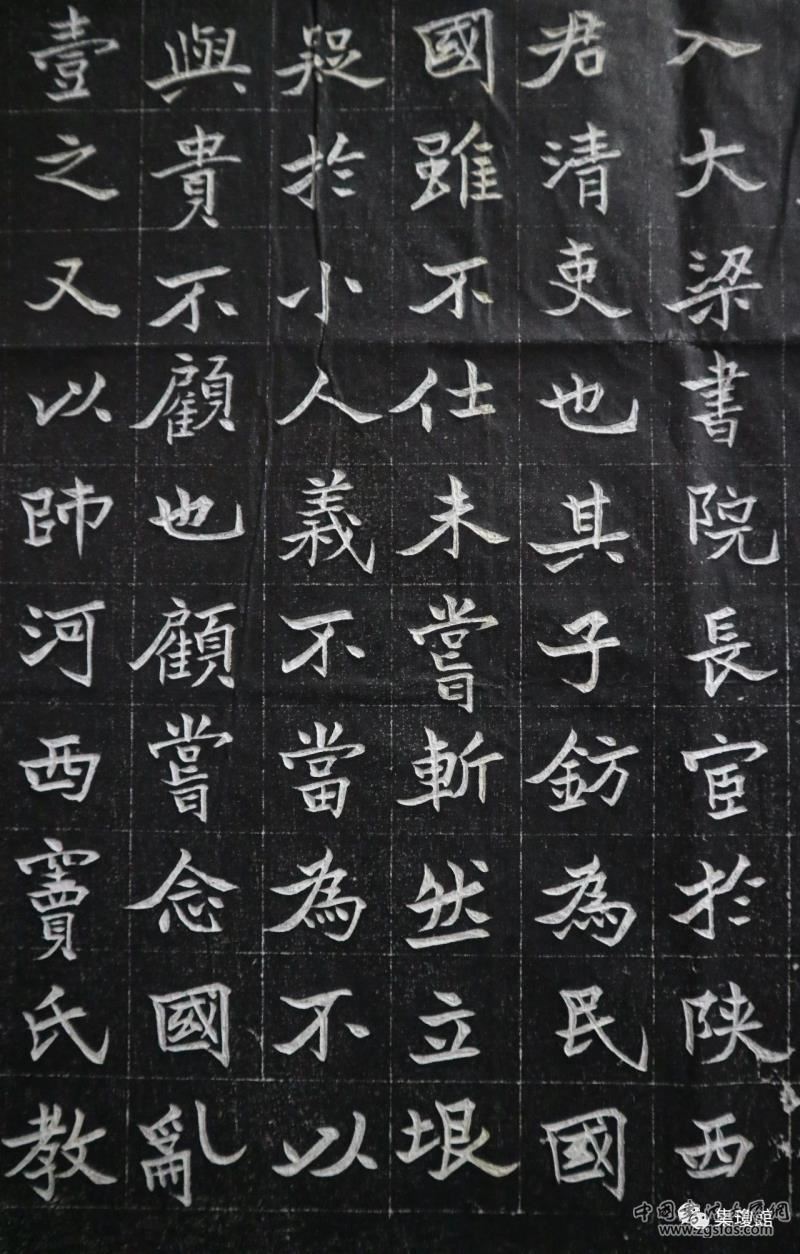 入大梁書院長宦於陝西
君清吏也其子鈁為民國
國雖不仕未嘗斬然立垠
於小人義不當為不以
與貴不顧也顧嘗念國亂
壹之又以師河西竇氏教
集瓊館
www.zgsfds.com